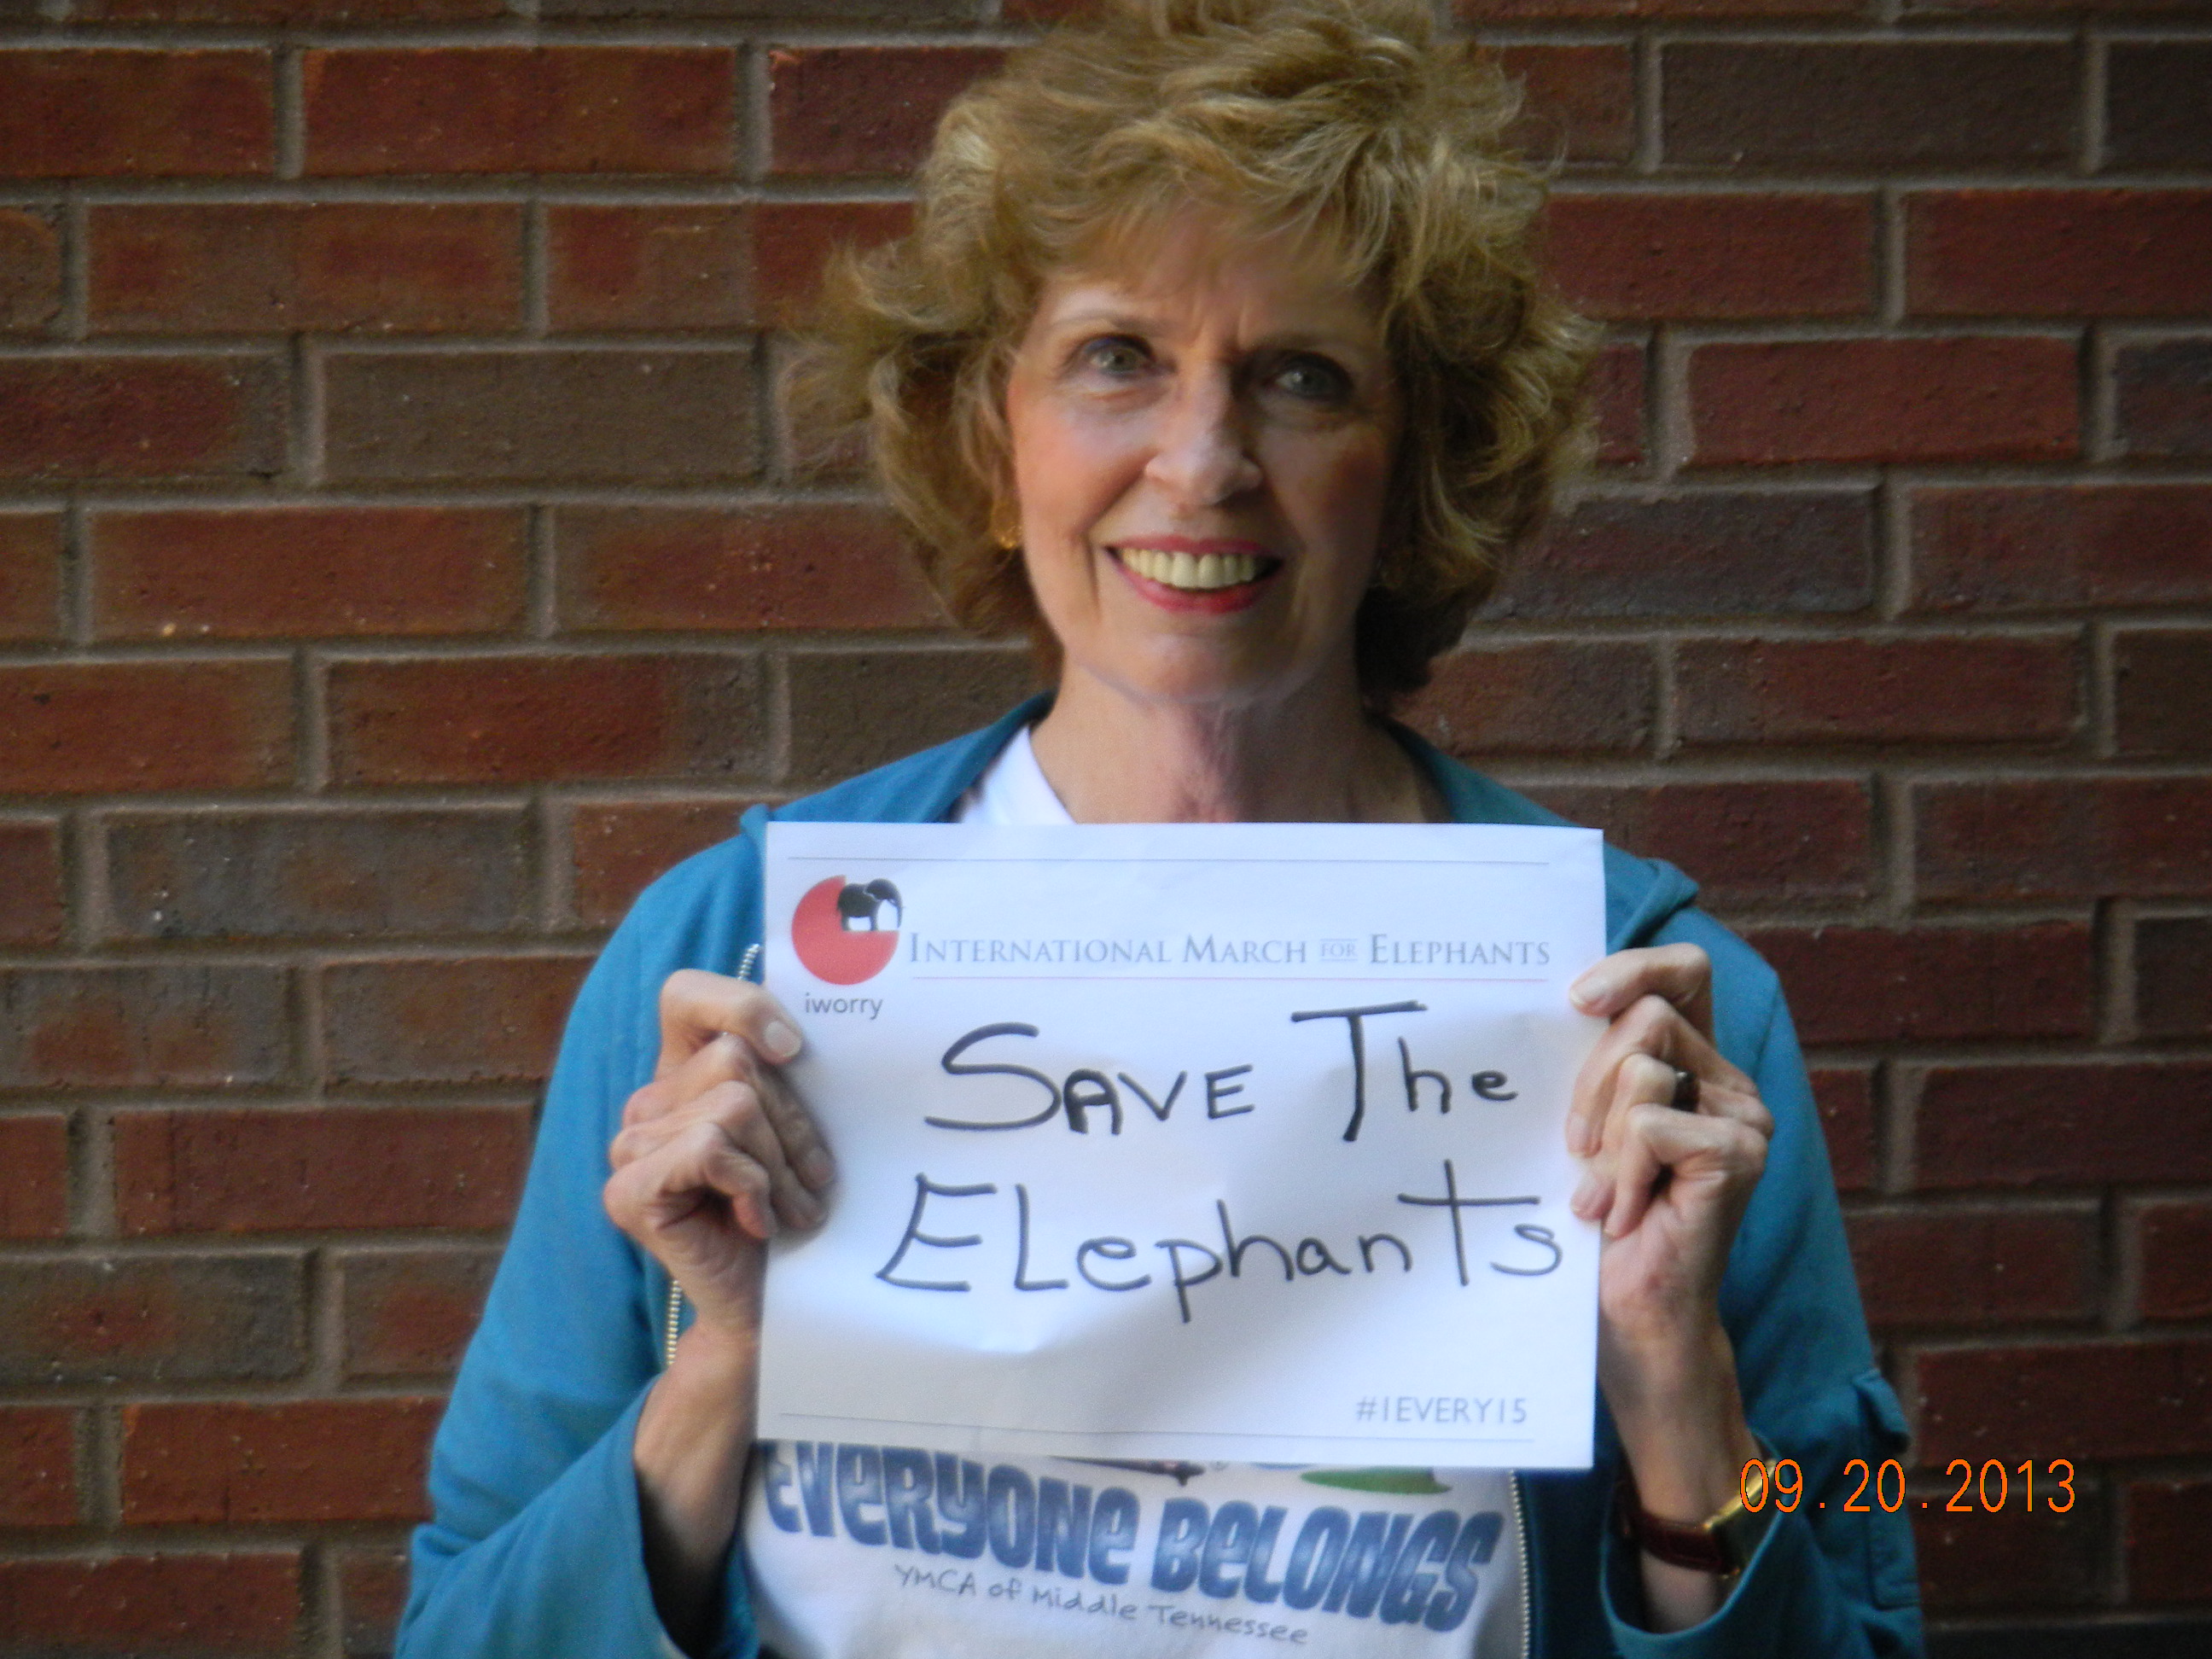 INTERNATIONAL MARCH FOR ELEPHANTS
iworry
SAVE The
ELephanTs
#1EVERY15
EVERYONE BELONGS
YMCA of Middle Tennessee
09.20.2013